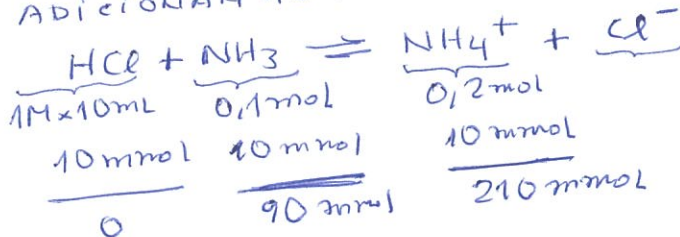 HCl + NH3 ⇌ NH4+ + Cl-
1M×10mL 0,1mol 0,2mol
10mmol 10mmol 10mmol
0 90 mmol 210 mmoL